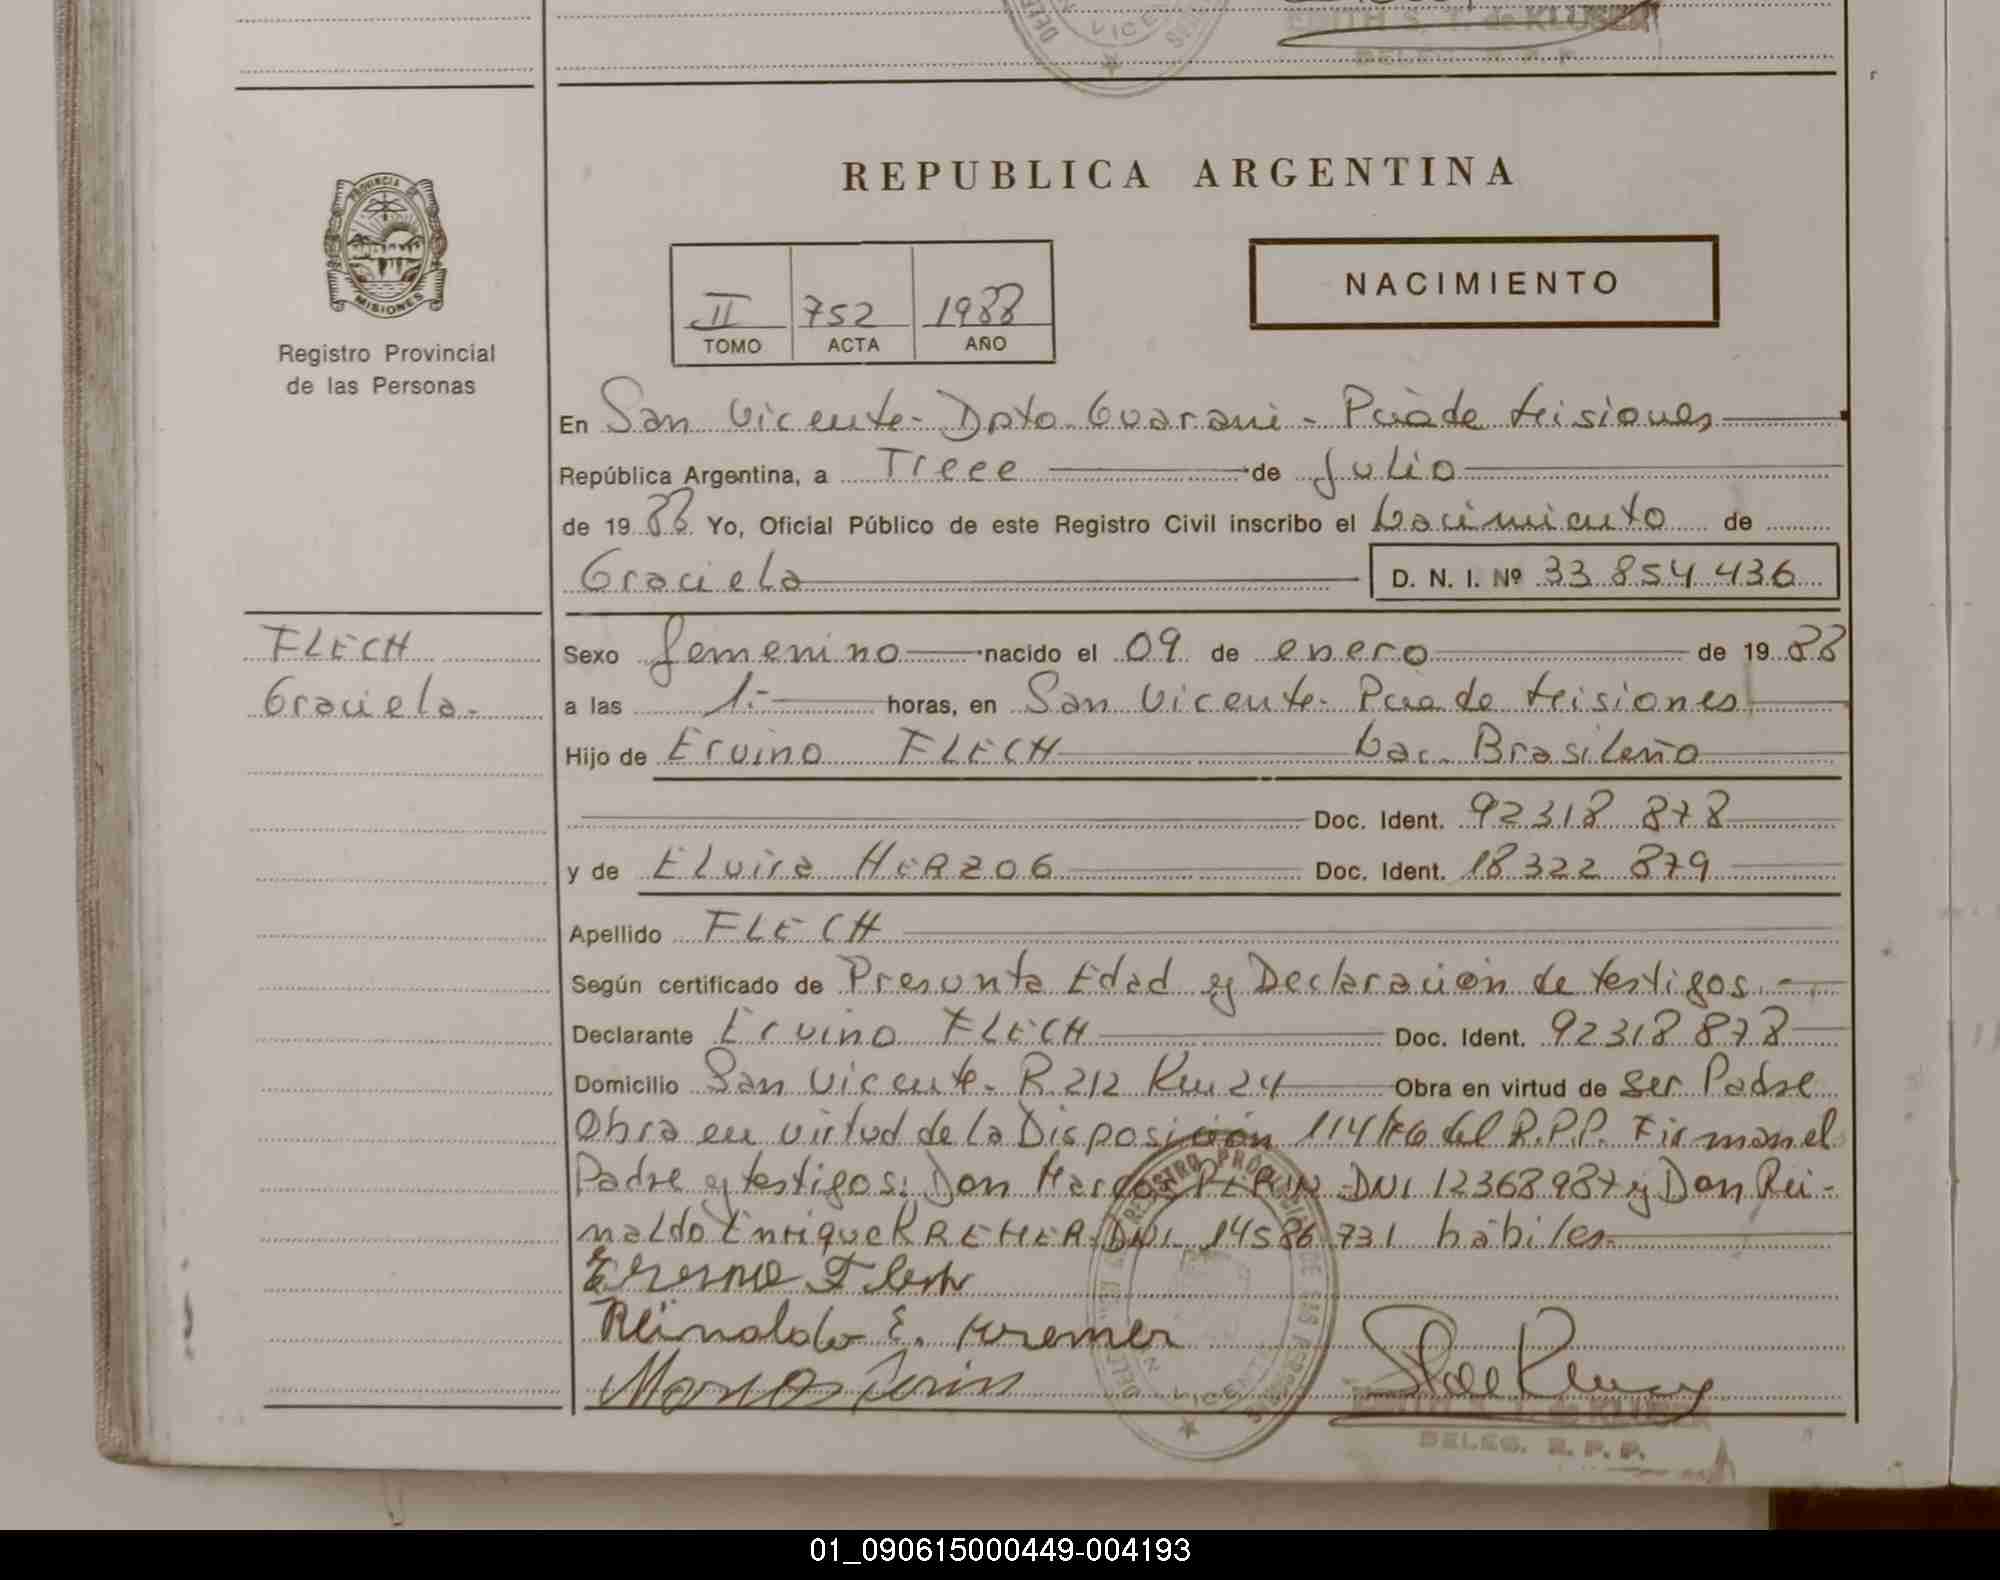 EDITH S. T. de KLUSER
DELEG. R. P. P.
VICEN
REPUBLICA ARGENTINA
PROVINCIA DE
MISIONES
Registro Provincial
de las Personas
II 752 1988
TOMO ACTA AÑO
NACIMIENTO
En San Vicente- Dpto. Guarani - Pciade Misiones
República Argentina, a Trece de Julio
de 1988. Yo, Oficial Público de este Registro Civil inscribo el Nacimiento de
Graciela D. N. I. Nº 33 854 436
FLECH
Graciela.-
Sexo femenino nacido el 09 de enero de 1988
a las 1.- horas, en San Vicente- Pcia de Misiones
Hijo de Ervino FLECH Nac. Brasileño
Doc. Ident. 92318 878
y de Elvira HERZOG Doc. Ident. 18322 879
Apellido FLECH
Según certificado de Presunta Edad y Declaración de testigos.-
Declarante Ervino FLECH Doc. Ident. 92318 878
Domicilio San Vicente- R 212 Km 24 Obra en virtud de ser Padre
Obra en virtud de la Disposición 114/76 del R.P.P. Firman el
Padre y testigos: Don Marcos PERIN DNI 12368987 y Don Rei-
naldo Enrique KREMER DNI 14586731 hábiles.
Ervino Flech
Reinaldo E. Kremer
Marcos Perin
VICENTE
DELEG. R. P. P.
01_090615000449-004193